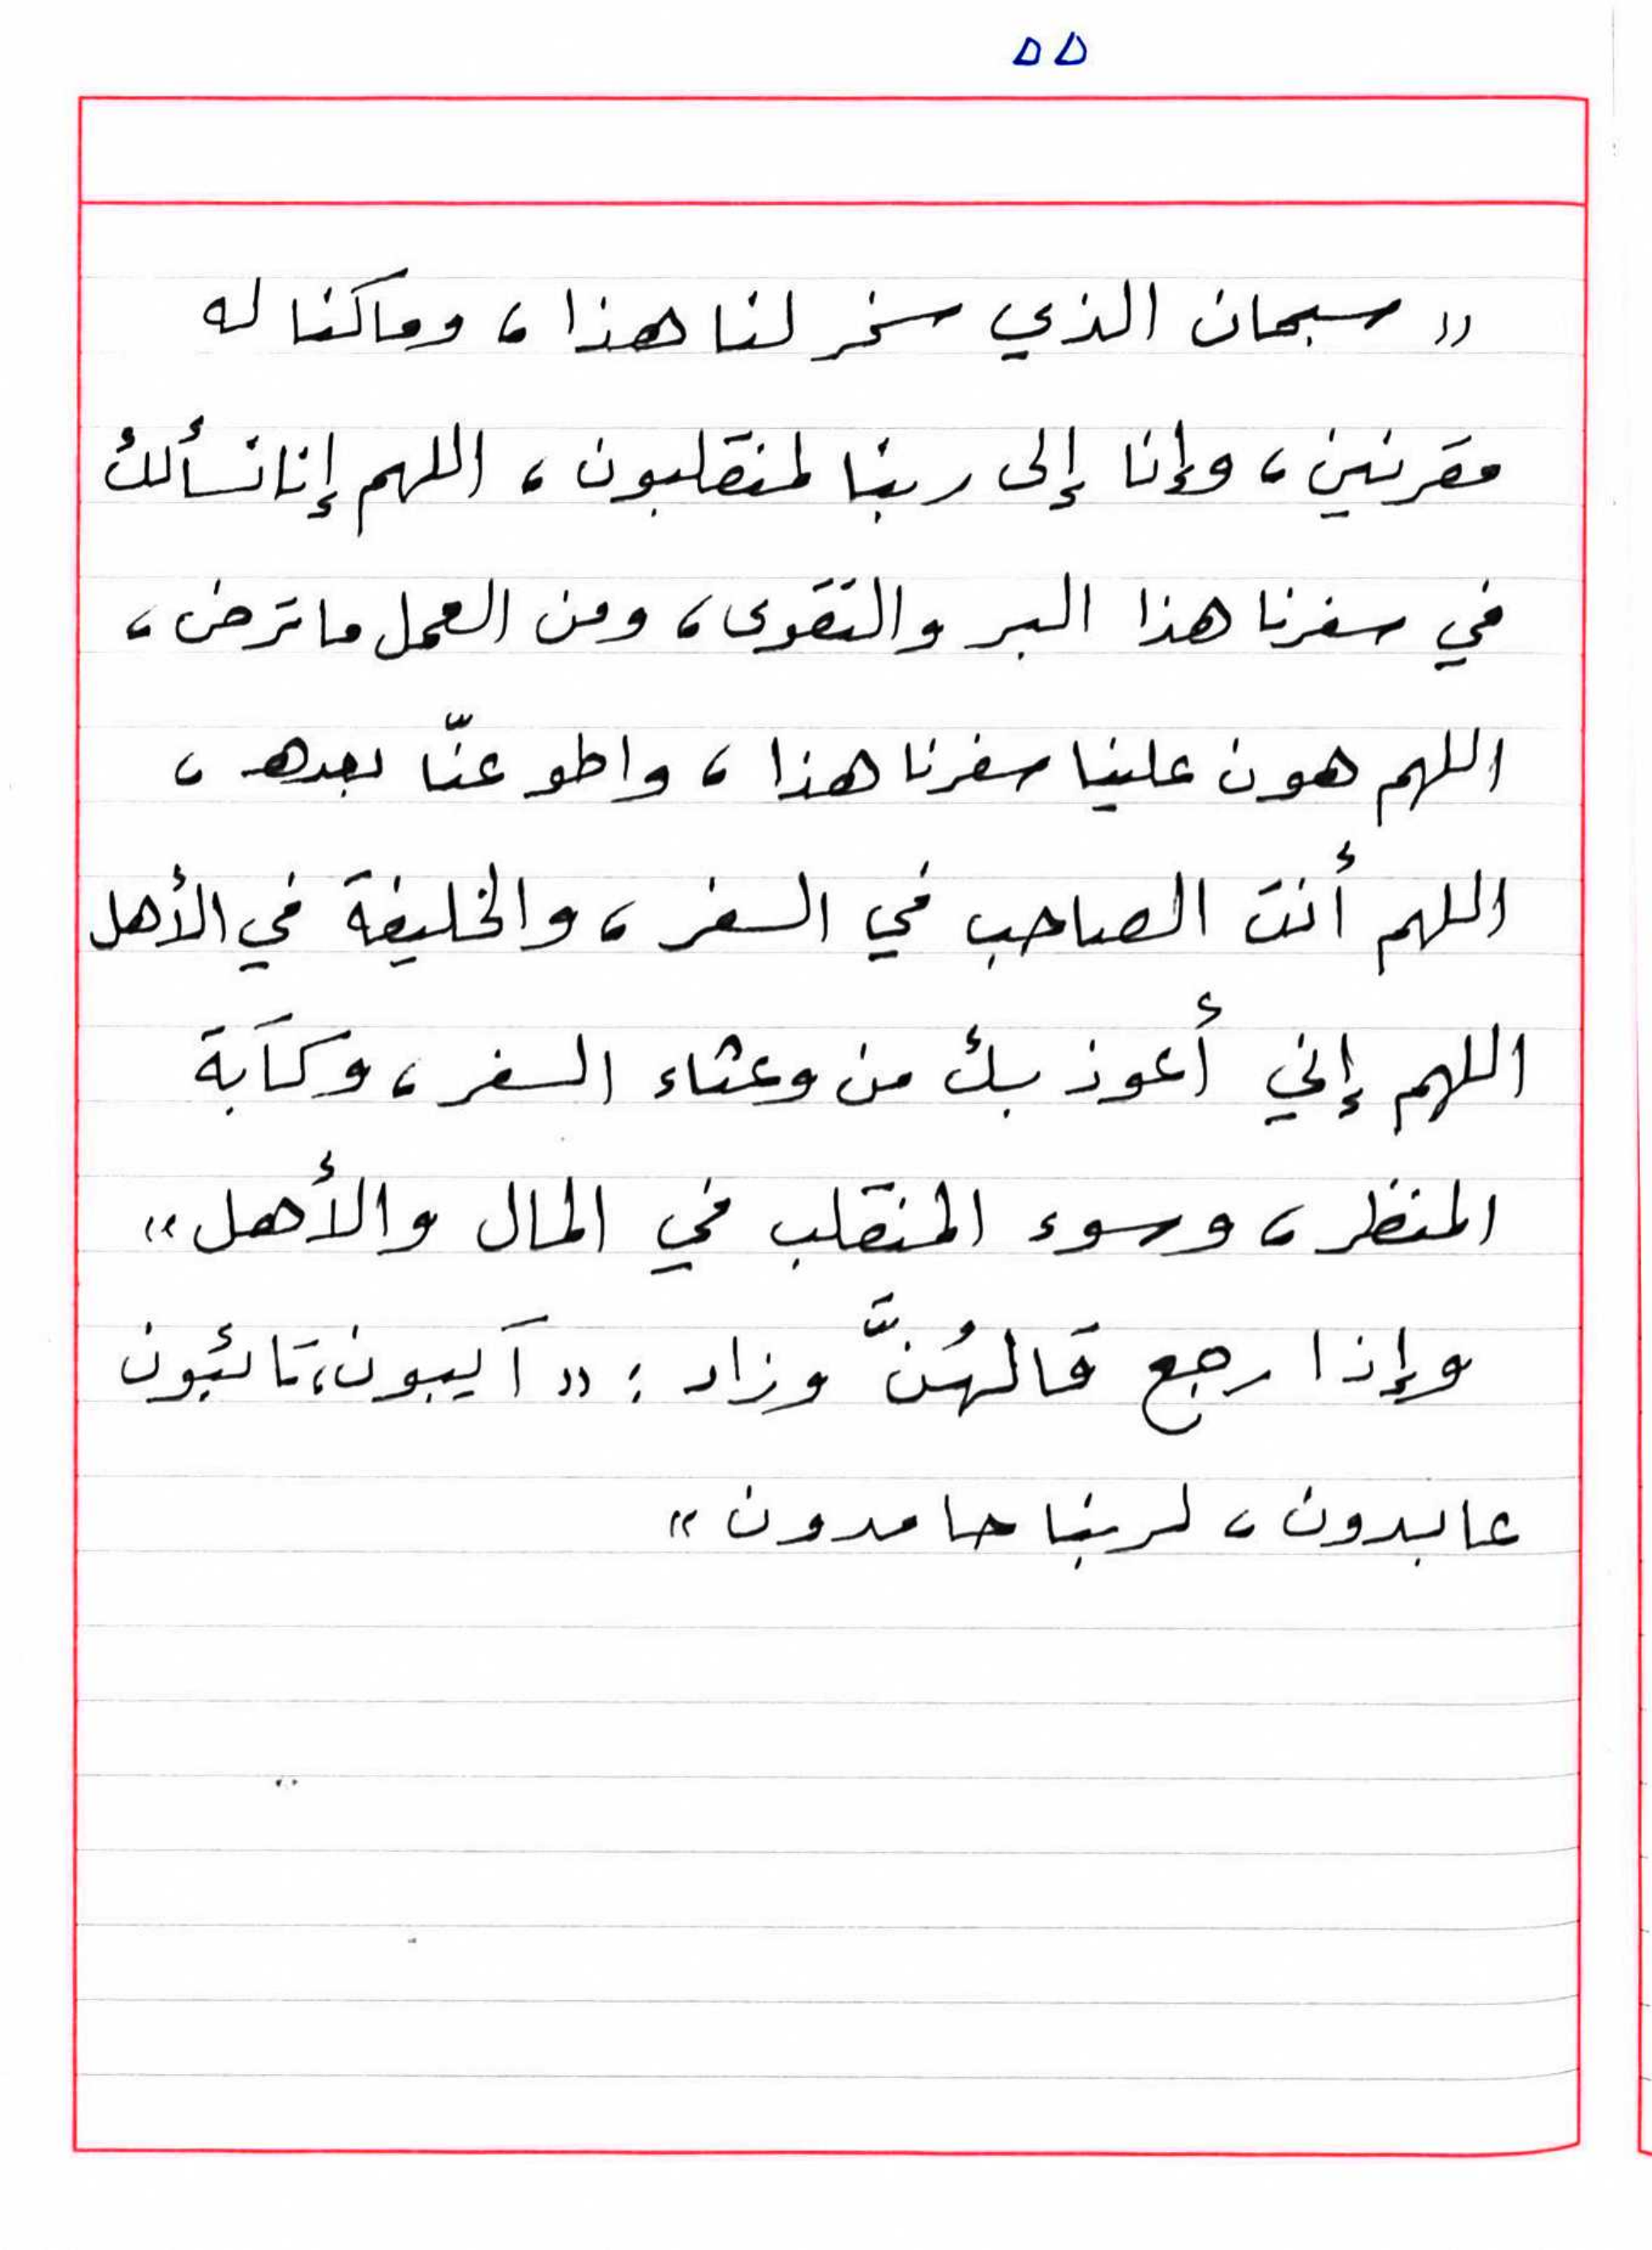 ٥٥
« سبحان الذي سخر لنا هذا ، وما كنا له
مقرنين ، وإنا إلى ربنا لمنقلبون ، اللهم إنا نسألك
في سفرنا هذا البر والتقوى ، ومن العمل ما ترضى ،
اللهم هون علينا سفرنا هذا ، واطو عنّا بعده ،
اللهم أنت الصاحب في السفر ، والخليفة في الأهل
اللهم إني أعوذ بك من وعثاء السفر ، وكآبة
المنظر ، وسوء المنقلب في المال والأهل »
وإذا رجع قالهُنَّ وزاد : « آيبون ، تائبون
عابدون ، لربنا حامدون »